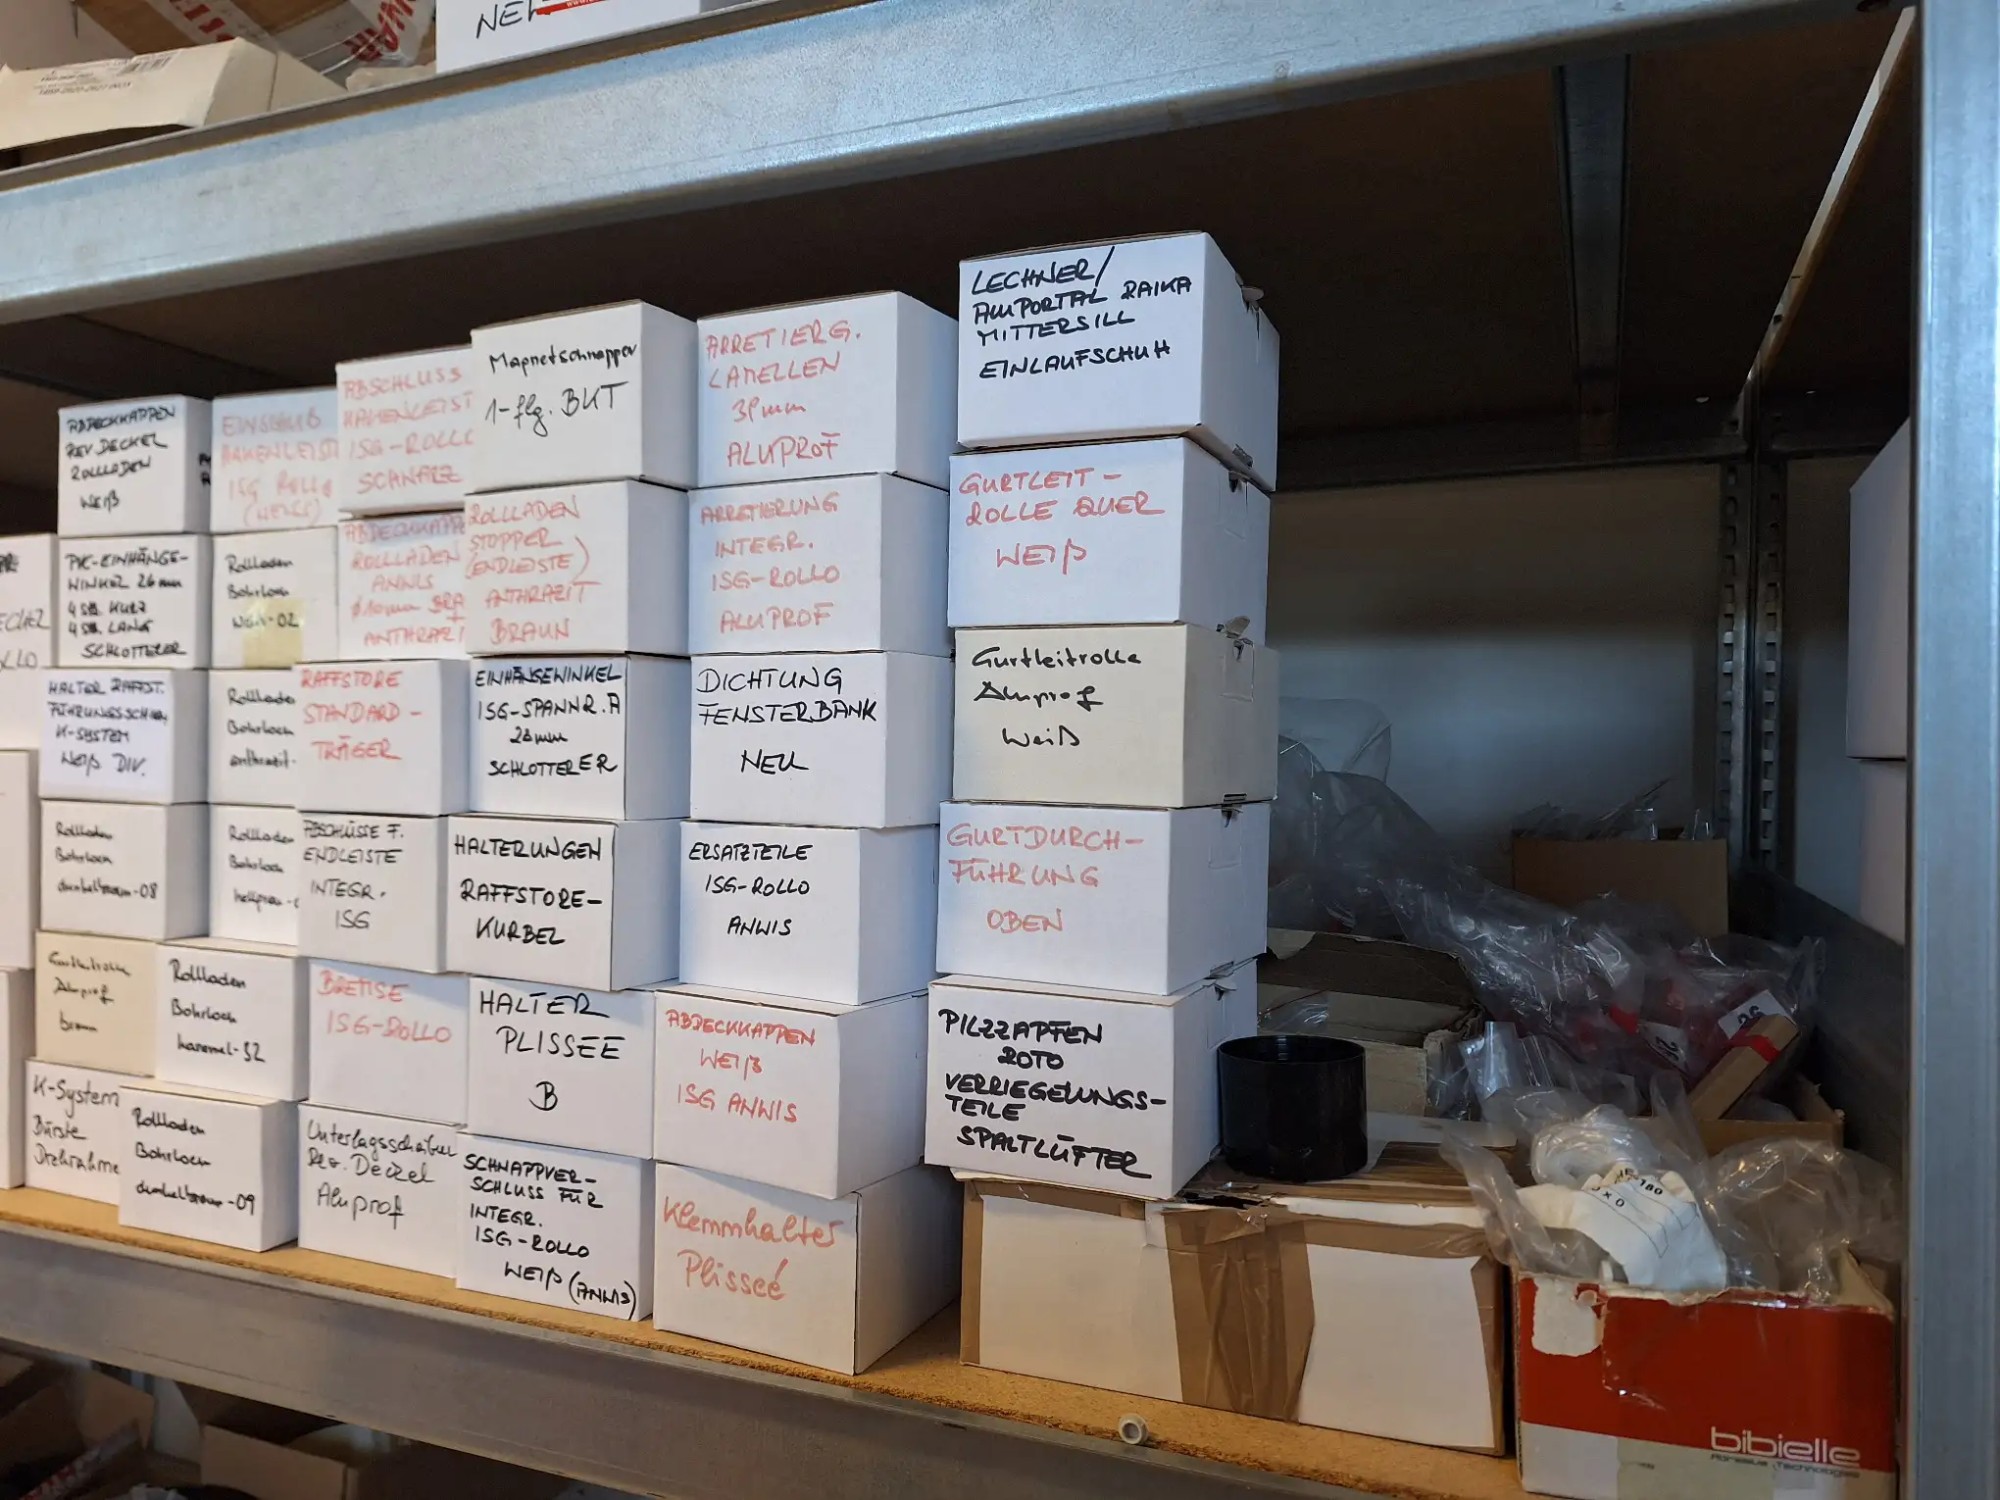 ABDECKKAPPEN
REV DECKEL
ROLLLADEN
WEIß
EINSCHUB
HAKENLEISTE
ISG ROLLO
(WEISS)
ABSCHLUSS
HAKENLEIST
ISG-ROLLO
SCHWARZ
Magnetschnapper
1-flg. BKT
ARRETIERG.
LAMELLEN
39mm
ALUPROF
LECHNER/
ALUPORTAL RAIKA
MITTERSILL
EINLAUFSCHUH
PVC-EINHÄNGE-
WINKEL 26mm
4 Stk. KURZ
4 Stk. LANG
SCHLOTTERER
Rollladen
Bohrloch
weiß-02
ABDECKKAPPE
ROLLLADEN
ANWIS
Ø10mm BRA
ANTHRAZI
ROLLLADEN
STOPPER
(ENDLEISTE)
ANTHRAZIT
BRAUN
ARRETIERUNG
INTEGR.
ISG-ROLLO
ALUPROF
GURTLEIT-
ROLLE QUER
WEIß
HALTER RAFFST.
FÜHRUNGSSCHIEN
K-SYSTEM
WEIß DIV.
Rollladen
Bohrloch
anthrazit-
RAFFSTORE
STANDARD-
TRÄGER
EINHÄNGEWINKEL
ISG-SPANNR. A
28mm
SCHLOTTERER
DICHTUNG
FENSTERBANK
NEU
Gurtleitrolle
Aluprof
Weiß
Rollladen
Bohrloch
dunkelbraun-08
Rollladen
Bohrloch
hellgrau-
ABSCHLÜSSE F.
ENDLEISTE
INTEGR.
ISG
HALTERUNGEN
RAFFSTORE-
KURBEL
ERSATZTEILE
ISG-ROLLO
ANWIS
GURTDURCH-
FÜHRUNG
OBEN
Gurtleitrolle
Aluprof
braun
Rollladen
Bohrloch
karamel-32
BREMSE
ISG-ROLLO
HALTER
PLISSEE
B
ABDECKKAPPEN
WEIß
ISG ANWIS
PILZZAPFEN
ROTO
VERRIEGELUNGS-
TEILE
SPALTLÜFTER
K-System
Bürste
Drehrahme
Rollladen
Bohrloch
dunkelbraun-09
Unterlagsscheiben
Rev. Deckel
Aluprof
SCHNAPPVER-
SCHLUSS FÜR
INTEGR.
ISG-ROLLO
WEIß (ANWIS)
Klemmhalter
Plisseé
bibielle
Abrasive Technologies